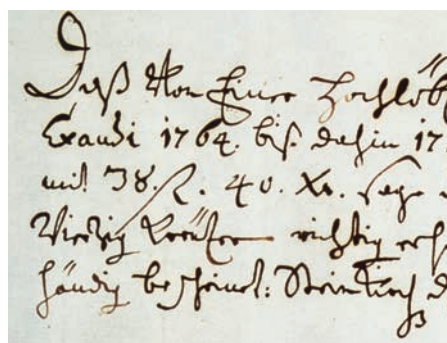 Daß Von Einer Hochlöb
Exaudi 1764. biß dahin 17
mit 38. fl. 40. Xr. sage
Vierzig Kreützer richtig
händig bescheinet: Steinkirch d